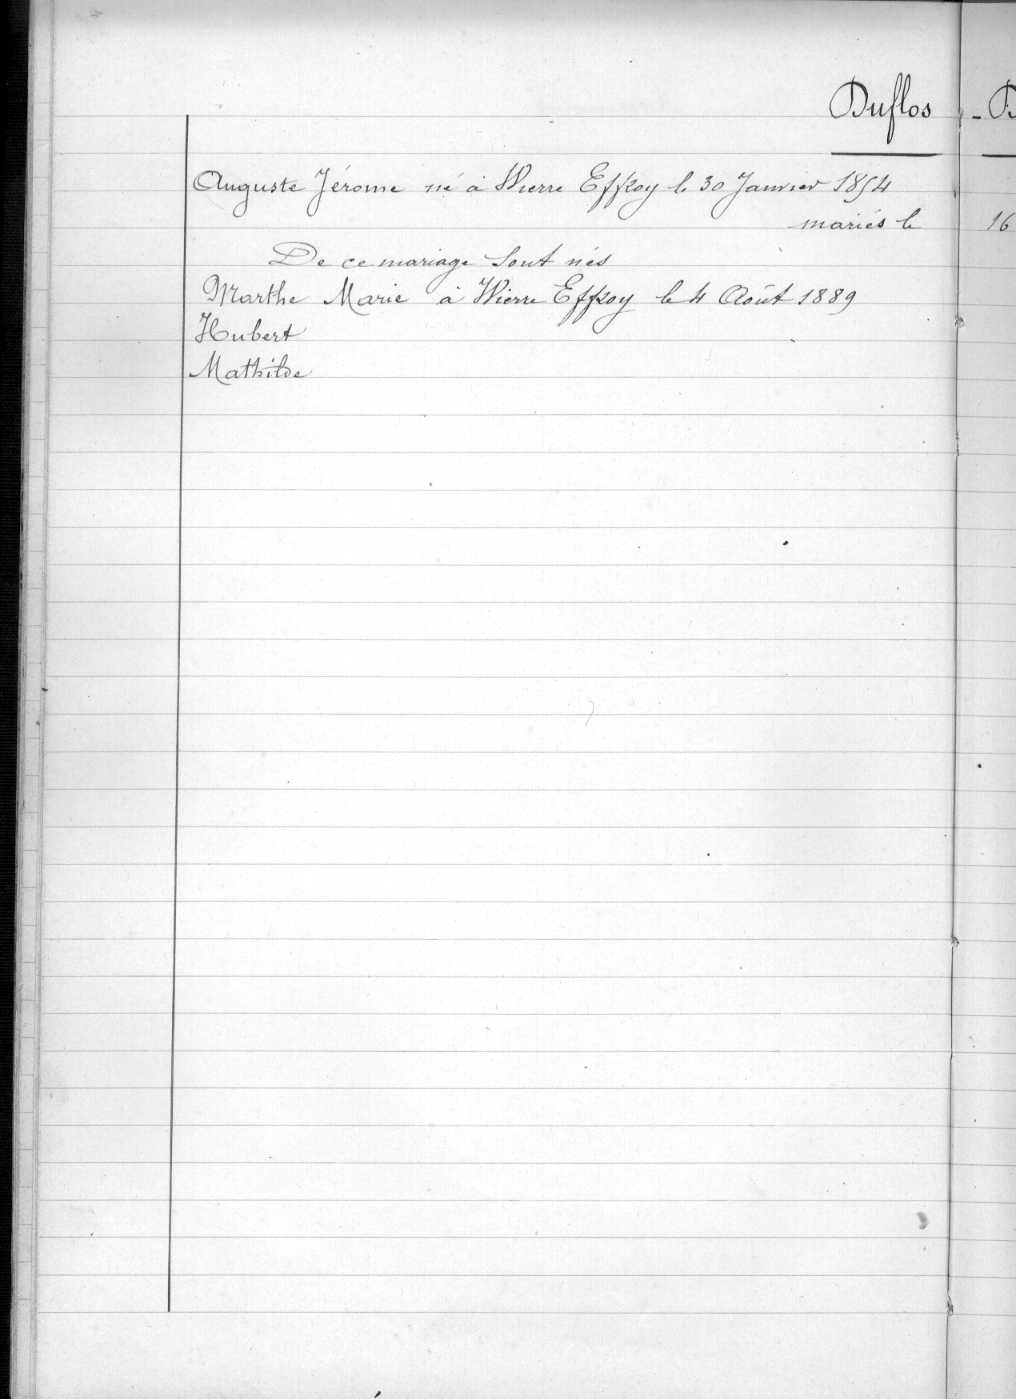 Duflos - D
Auguste Jérome né à Wierre Effroy le 30 Janvier 1854
mariés le 16
De ce mariage sont nés
Marthe Marie à Wierre Effroy le 4 Août 1889
Hubert
Mathilde